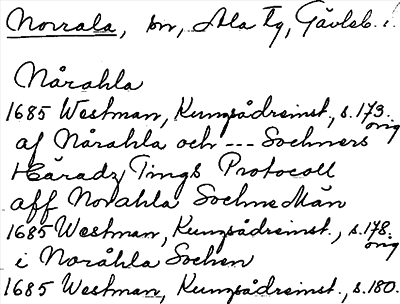 Norrala, sn, Ala tg, Gävleb. l.
Nårahla
1685 Westman, Kungsådreinst., s. 173.
orig
af Nårahla och --- Sochners
Häradz Tings Protocoll
aff Norahla Sochne Män
1685 Westman, Kungsådreinst., s. 178.
orig
i Noråhla Sochen
1685 Westman, Kungsådreinst., s. 180.